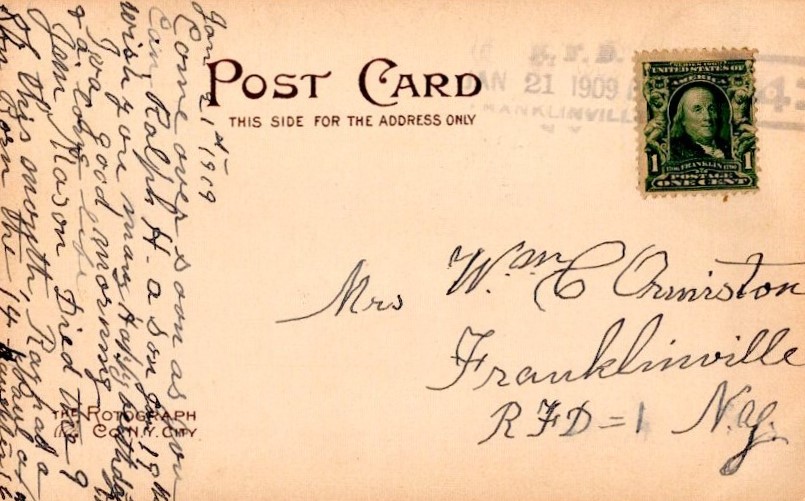 POST CARD
THIS SIDE FOR THE ADDRESS ONLY
R. F. D.
JAN 21 1909
FRANKLINVILLE
N Y
SERIES 1902
UNITED STATES OF
AMERICA
1 1706 FRANKLIN 1790 1
POSTAGE
ONE CENT
Mrs Wm C Ormiston
Franklinville
RFD = 1 N.Y.
THE ROTOGRAPH
CO. N.Y. CITY
Jan 21st 1909
Come over soon as you
Can, Ralph H. a son Jan 19th
wish you many happy birthday
good morning
&
John Mason Died the 9
of this month, Ray had a
Born the 14